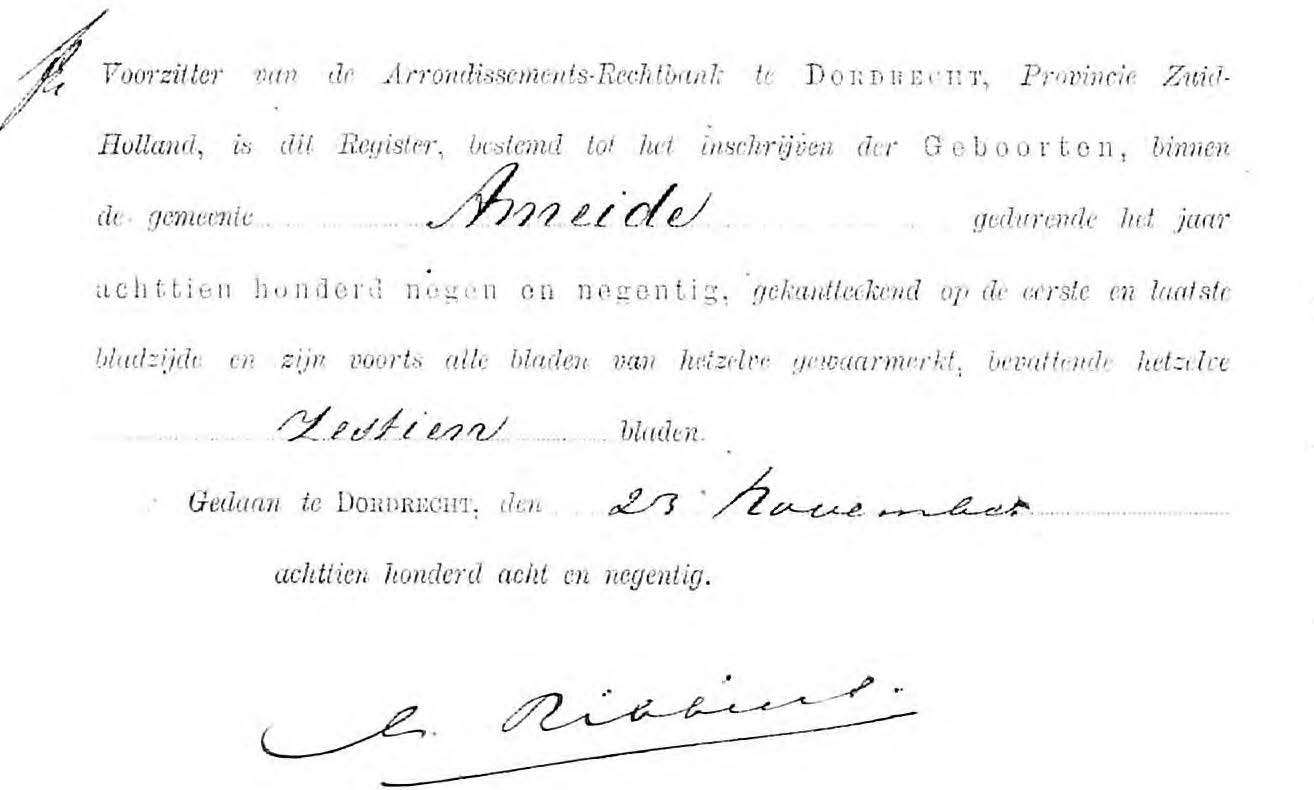 Voorzitter van de Arrondissements-Rechtbank te DORDRECHT, Provincie Zuid-
Holland, is dit Register, bestemd tot het inschrijven der Geboorten, binnen
de gemeente Ameide gedurende het jaar
achttien honderd negen en negentig, gekantteekend op de eerste en laatste
bladzijde en zijn voorts alle bladen van hetzelve gewaarmerkt, bevattende hetzelve
Zestien bladen.
Gedaan te DORDRECHT, den 23 November
achttien honderd acht en negentig.
Ribbius.